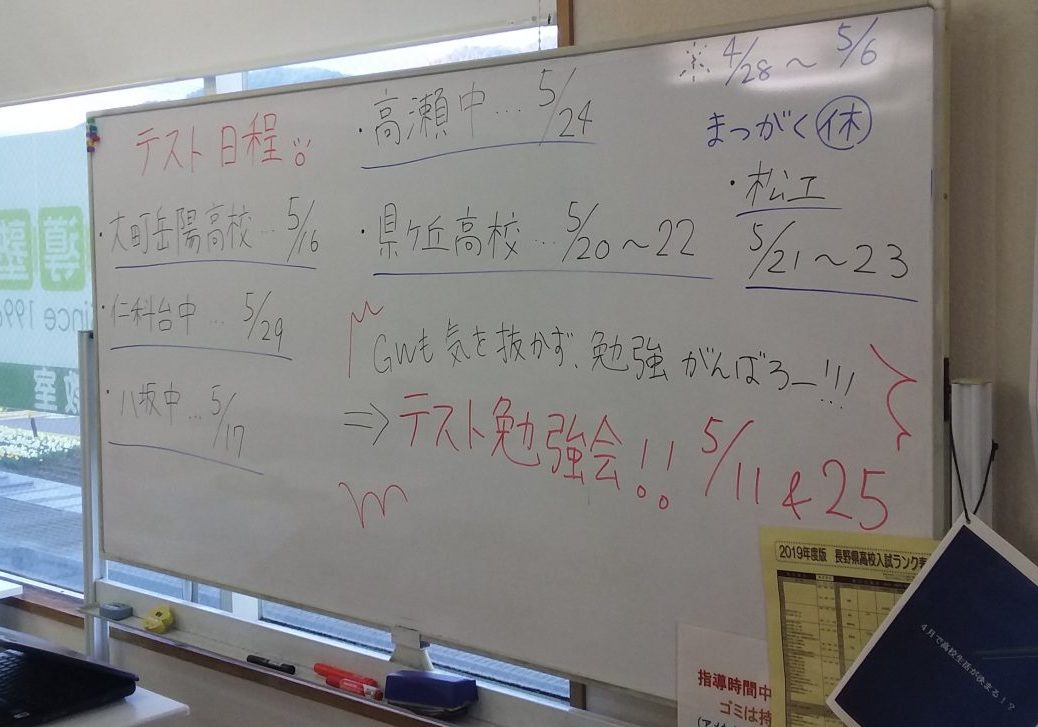 テスト日程
・大町岳陽高校…5/16
・仁科台中…5/29
・八坂中…5/17
・高瀬中…5/24
・県ヶ丘高校…5/20～22
※4/28～5/6
まつがく㊡
・松工
5/21～23
GWも気を抜かず、勉強がんばろー!!!
⇒テスト勉強会!! 5/11&25
2019年度版 長野県高校入試ランク
4月で高校生活が決まる!?
指導時間中
ゴミは持
導塾
since 199
教室